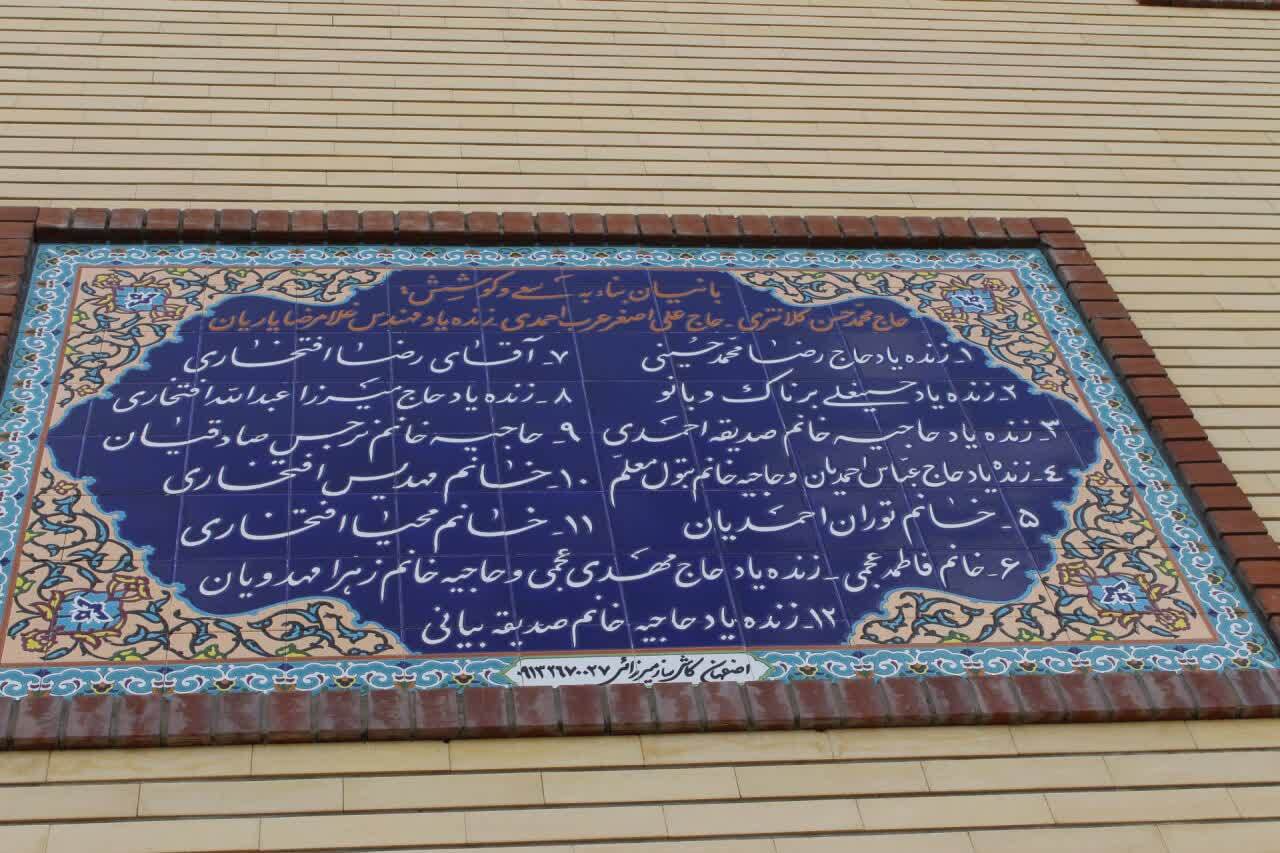 بانیان بناء به سعی و کوشش:
حاج محمد حسن کلانتری - حاج علی اصغر عرب احمدی - زنده یاد مهندس غلامرضا یاریان
۱- زنده یاد حاج رضا محمد حسینی
۲- زنده یاد حسینعلی برناک و بانو
۳- زنده یاد حاجیه خانم صدیقه احمدی
۴- زنده یاد حاج عباس احمدیان و حاجیه خانم بتول معلم
۵- خانم توران احمدیان
۶- خانم فاطمه عجمی - زنده یاد حاج مهدی عجمی و حاجیه خانم زهرا مهدویان
۷- آقای رضا افتخاری
۸- زنده یاد حاج میرزا عبدالله افتخاری
۹- حاجیه خانم نرجس صادقیان
۱۰- خانم مهدیس افتخاری
۱۱- خانم محیا افتخاری
۱۲- زنده یاد حاجیه خانم صدیقه بیانی
اصفهان کاشی ساز میرزائی ۰۹۱۳۲۶۷۰۰۲۷